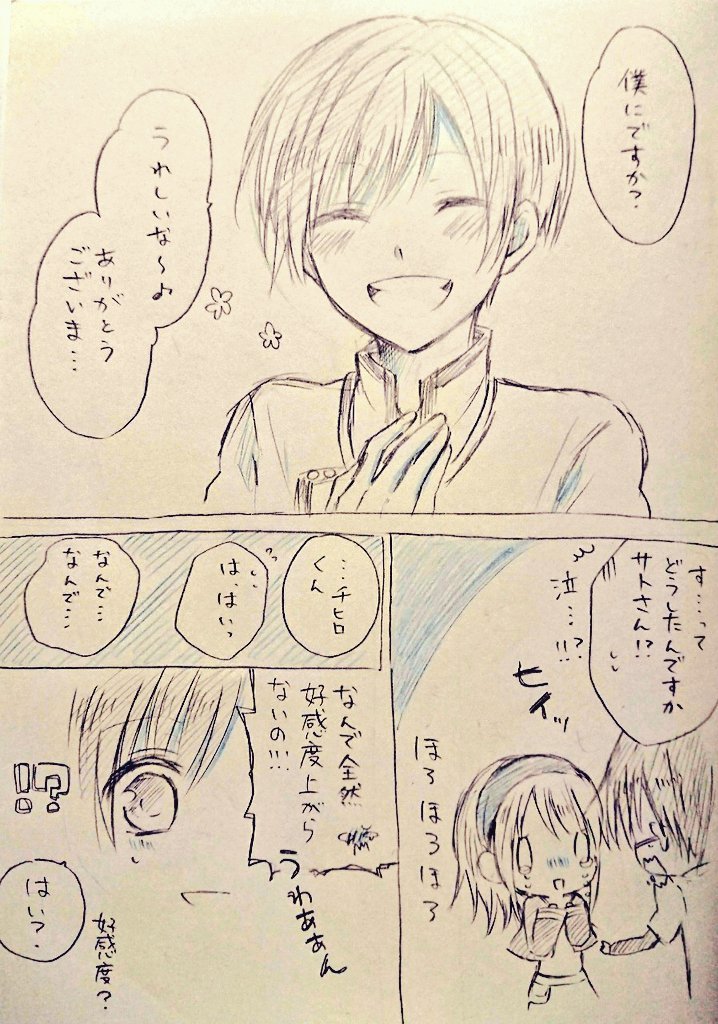 僕にですか?
うれしいな〜♪
ありがとう
ございま…
す…って
どうしたんですか
サトさん!?
泣…!!?
ヒィッ
ほろほろほろ
…チヒロ
くん
は、はいっ
なんで…
なんで…
なんで全然
好感度上がら
ないの!!!
うわああん
!?
はい?
好感度?